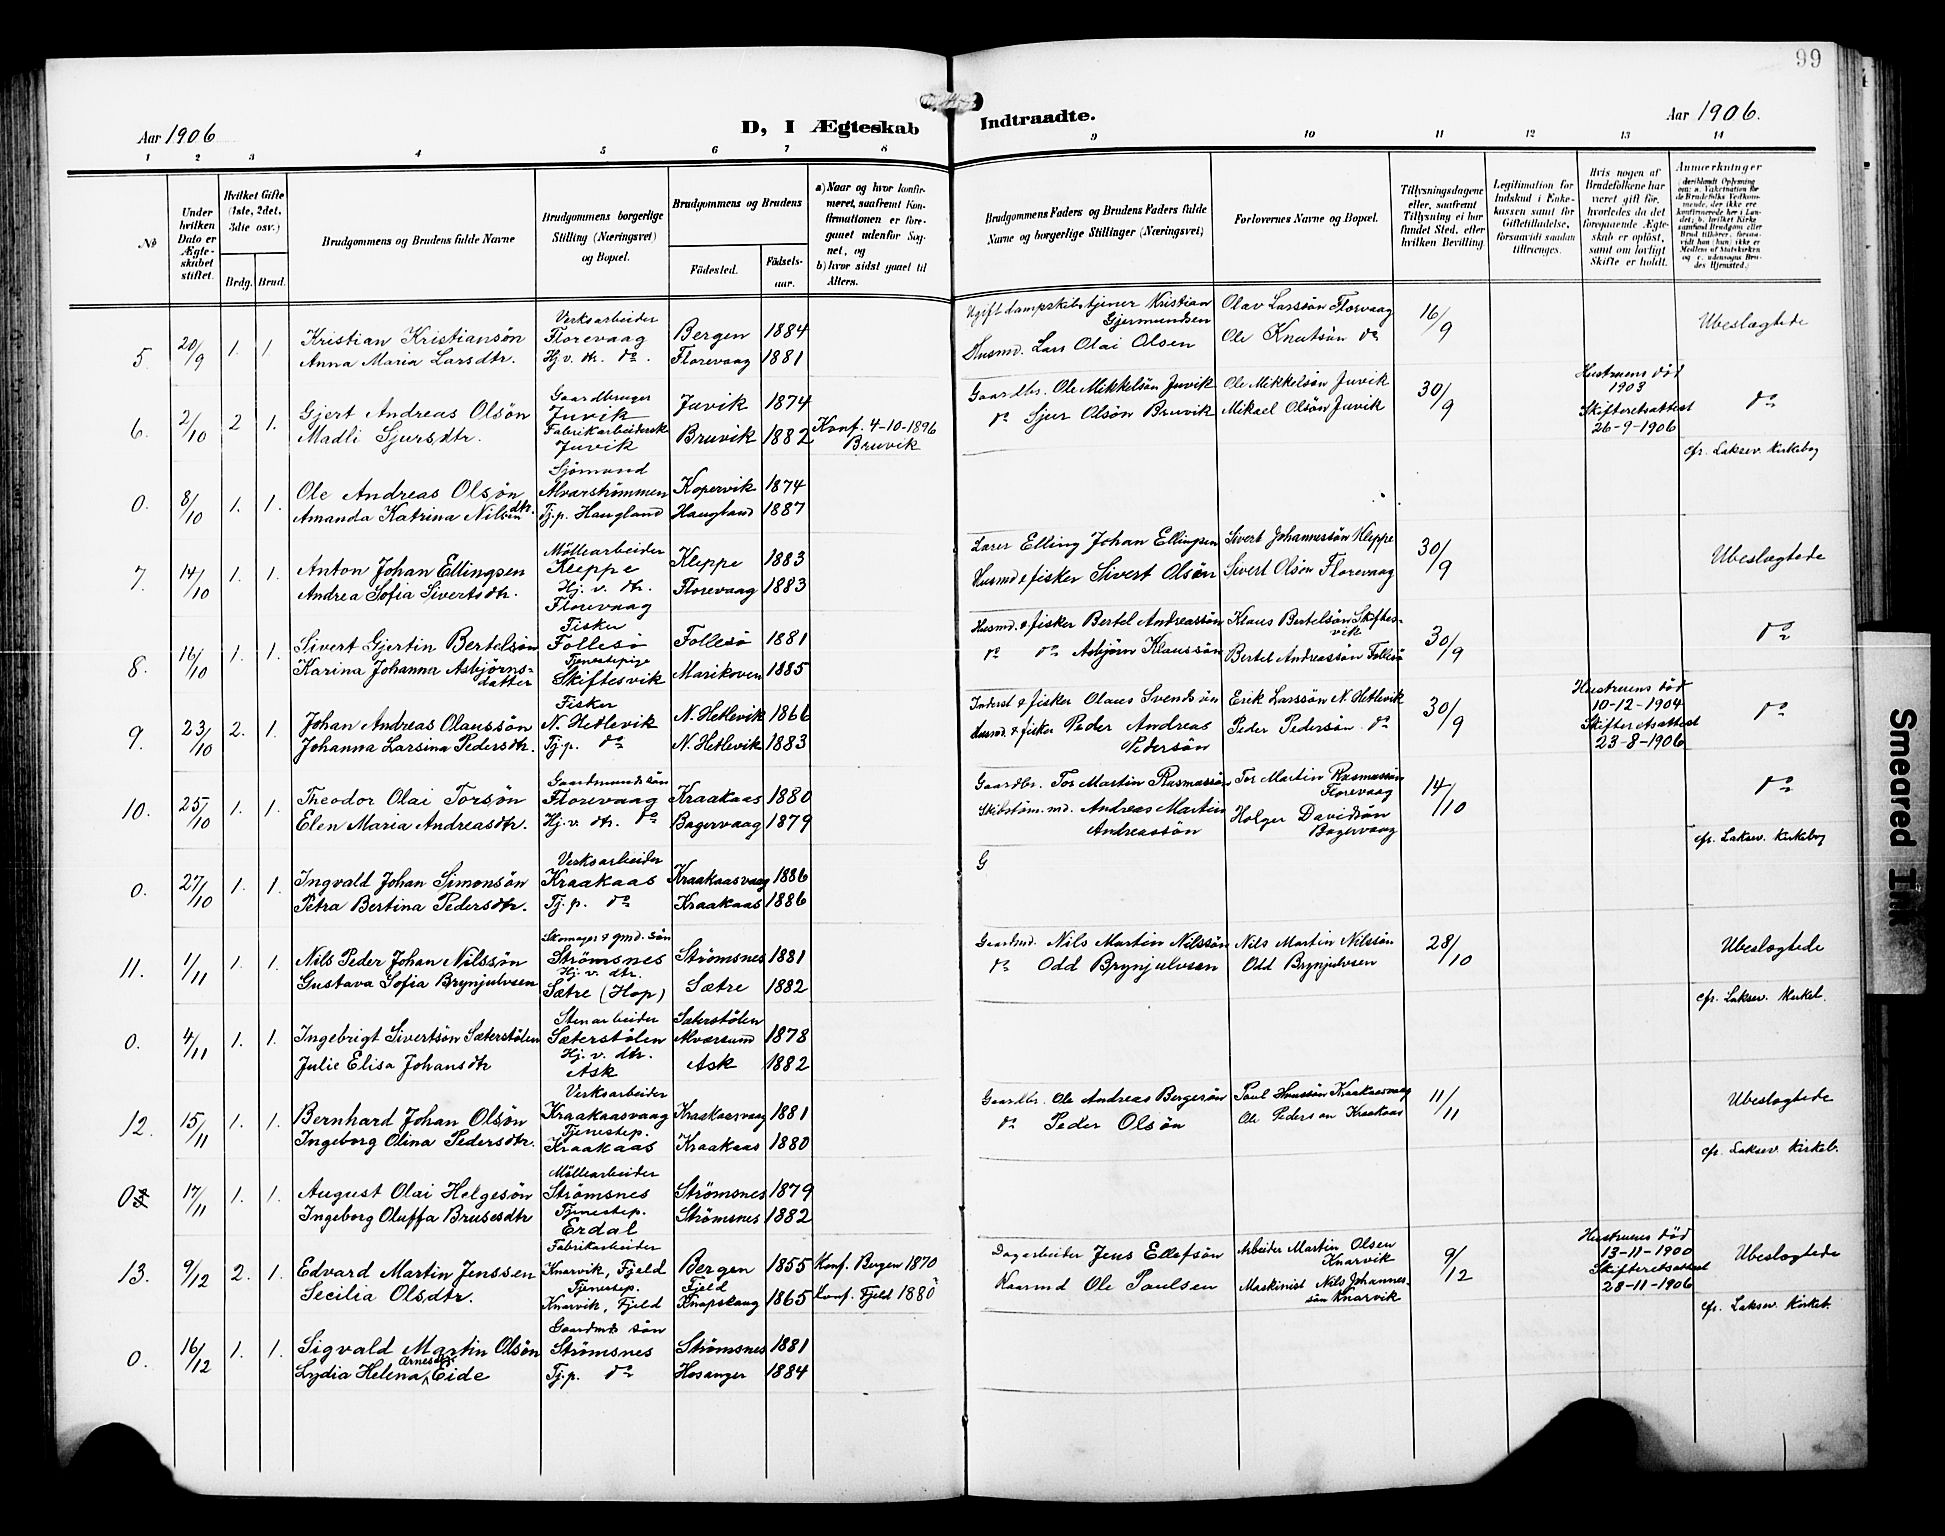 99
Aar 1906
D, I Ægteskab Indtraadte.
Aar 1906.
1 2 3 4 5 6 7 8 9 10 11 12 13 14
No
Under hvilken Dato er Ægteskabet stiftet.
Hvilket Gifte (1ste, 2det, 3die osv.)
Brdg. Brud.
Brudgommens og Brudens fulde Navne
Brudgommens borgerlige Stilling (Næringsvei) og Bopæl.
Brudgommens og Brudens
Födested.
Födselsaar.
a) Naar og hvor konfirmeret, saafremt Konfirmationen er foregaaet udenfor Sognet, og
b) hvor sidst gaaet til Alters.
Brudgommens Faders og Brudens Faders fulde Navne og borgerlige Stillinger (Næringsvei)
Forlovernes Navne og Bopæl.
Tillysningsdagene eller, saafremt Tillysning ei har fundet Sted, efter hvilken Bevilling
Legitimation for Indskud i Enkekassen samt for Giftetilladelse, forsaavidt saadan tiltrænges.
Hvis nogen af Brudefolkene har været gift för, hvorledes da det foregaaende Ægteskab er oplöst, samt om lovligt Skifte er holdt.
Anmerkninger
5. 20/9 1. 1. Kristian Kristiansön Verksarbeider Florevaag Bergen 1884 Ugift dampskibstjener Kristian Gjermundsen Olav Larssön Florvaag 16/9 Ubeslægtede
Anna Maria Larsdtr. Hj. v. dtr. do. Florevaag 1881 Husmd. Lars Olai Olsen Ole Knutsön do
6. 2/10 2 1. Gjert Andreas Olsön Gaardbruger Juvik Juvik 1874 Gaardbr. Ole Mikkelsön Juvik Ole Mikkelsön Juvik 30/9 Hustruens död 1903 Skifteretsattest 26-9-1906 do
Madli Sjursdtr. Fabrikarbeiderske Juvik Bruvik 1882 Konf. 4-10-1896 Bruvik do Sjur Olsön Bruvik Mikael Olsön Juvik
0. 8/10 1. 1. Ole Andreas Olsön Sjömand Alværströmmen Kopervik 1874 cfr. Laksev. Kirkebog
Amanda Katrina Nilsendtr. Tj.p. Haugland Haugland 1887
7. 14/10 1. 1. Anton Johan Ellingsen Möllearbeider Kleppe Kleppe 1883 Lærer Elling Johan Ellingsen Sivert Johannessön Kleppe 30/9 Ubeslægtede
Andrea Sofia Sivertsdtr. Hj. v. dtr. Florevaag Florevaag 1883 Husmd & fisker Sivert Olsön Sivert Olsön Florevaag
8. 16/10 1. 1. Sivert Gjertin Bertelsön Fisker Follesö Follesö 1881 Husmd. & fisker Bertel Andreassön Klaus Bertelsön Skiftesvik 30/9 do
Karina Johanna Asbjörnsdatter Tjenestepige Skiftesvik Marikoven 1885 do do Asbjörn Klaussön Bertel Andreassön Follesö
9. 23/10 2. 1. Johan Andreas Olaussön Fisker N. Hetlevik N. Hetlevik 1866 Inderst & fisker Olaus Svendsön Erik Larssön N. Hetlevik 30/9 Hustruens död 10-12-1904 Skifteretsattest 23-8-1906 do
Johanna Larsina Pedersdtr. Tj.p. do N. Hetlevik 1883 Husmd. & fisker Peder Andreas Pedersön Peder Pedersön do
10. 25/10 1. 1. Theodor Olai Torsön Gaardmandssön Florevaag Kraakaas 1880 Gaardbr. Tor Martin Rasmussön Tor Martin Rasmussön Florevaag 14/10 do
Elen Maria Andreasdtr. Hj. v. dtr. do Bagervaag 1879 Skibstöm.md. Andreas Martin Andreassön Holger Davidsön Bagervaag
0. 27/10 1. 1. Ingvald Johan Simonsön Verksarbeider Kraakaas Kraakaasvaag 1886 G cfr. Laksev. Kirkebog
Petra Bertina Pedersdtr. Tj.p. do Kraakaas 1886
11. 1/11 1. 1. Nils Peder Johan Nilssön Skomager & gmd. sön Strömsnes Strömsnes 1881 Gaardmd. Nils Martin Nilssön Nils Martin Nilssön 28/10 Ubeslægtede
Gustava Sofia Brynjulvsen Hj. v. dtr. Sætre (Hop) Sætre 1882 do Odd Brynjulvsen Odd Brynjulvsen
0. 4/11 1. 1. Ingebrigt Sivertsön Sæterstölen Stenarbeider Sæterstölen Sæterstölen Alværsund 1878 cfr. Laksev. Kirkeb.
Julie Elisa Johansdtr Hj. v. dtr. Ask Ask 1882
12. 15/11 1. 1. Bernhard Johan Olsön Verksarbeider Kraakaasvaag Kraakaasvaag 1881 Gaardbr. Ole Andreas Bergersön Paul Kraakaasvaag 11/11 Ubeslægtede
Ingeborg Olina Pedersdtr. Tjenestep. Kraakaas Kraakaas 1880 do Peder Olsön Ole Pedersen Kraakaas
0 17/11 1. 1. August Olai Helgesön Möllearbeider Strömsnes Strömsnes 1879 cfr. Laksev. Kirkeb.
Ingeborg Oluffa Brusesdtr Tjenestep. Erdal Strömsnes 1882
13. 9/12 2. 1. Edvard Martin Jenssen Fabrikarbeider Knarvik, Fjeld Bergen 1855 Konf. Bergen 1870 Dagarbeider Jens Ellefsön Arbeider Martin Olsen Knarvik 9/12 Hustruens död 13-11-1900 Skifteretsattest 28-11-1906 Ubeslægtede
Secilia Olsdtr. Tjenestep. Knarvik, Fjeld Fjeld Knapskaug 1865 Konf. Fjeld 1880 Kaarmd Ole Paulsen Maskinist Nils Johannessön Knarvik
0. 16/12 1. 1. Sigvald Martin Olsön Gaardmds sön Strömsnes Strömsnes 1881 cfr. Laksev. Kirkeb.
Lydia Helena Arnesdtr. Eide Tj.p. do Hosanger 1884
Smeared Ink